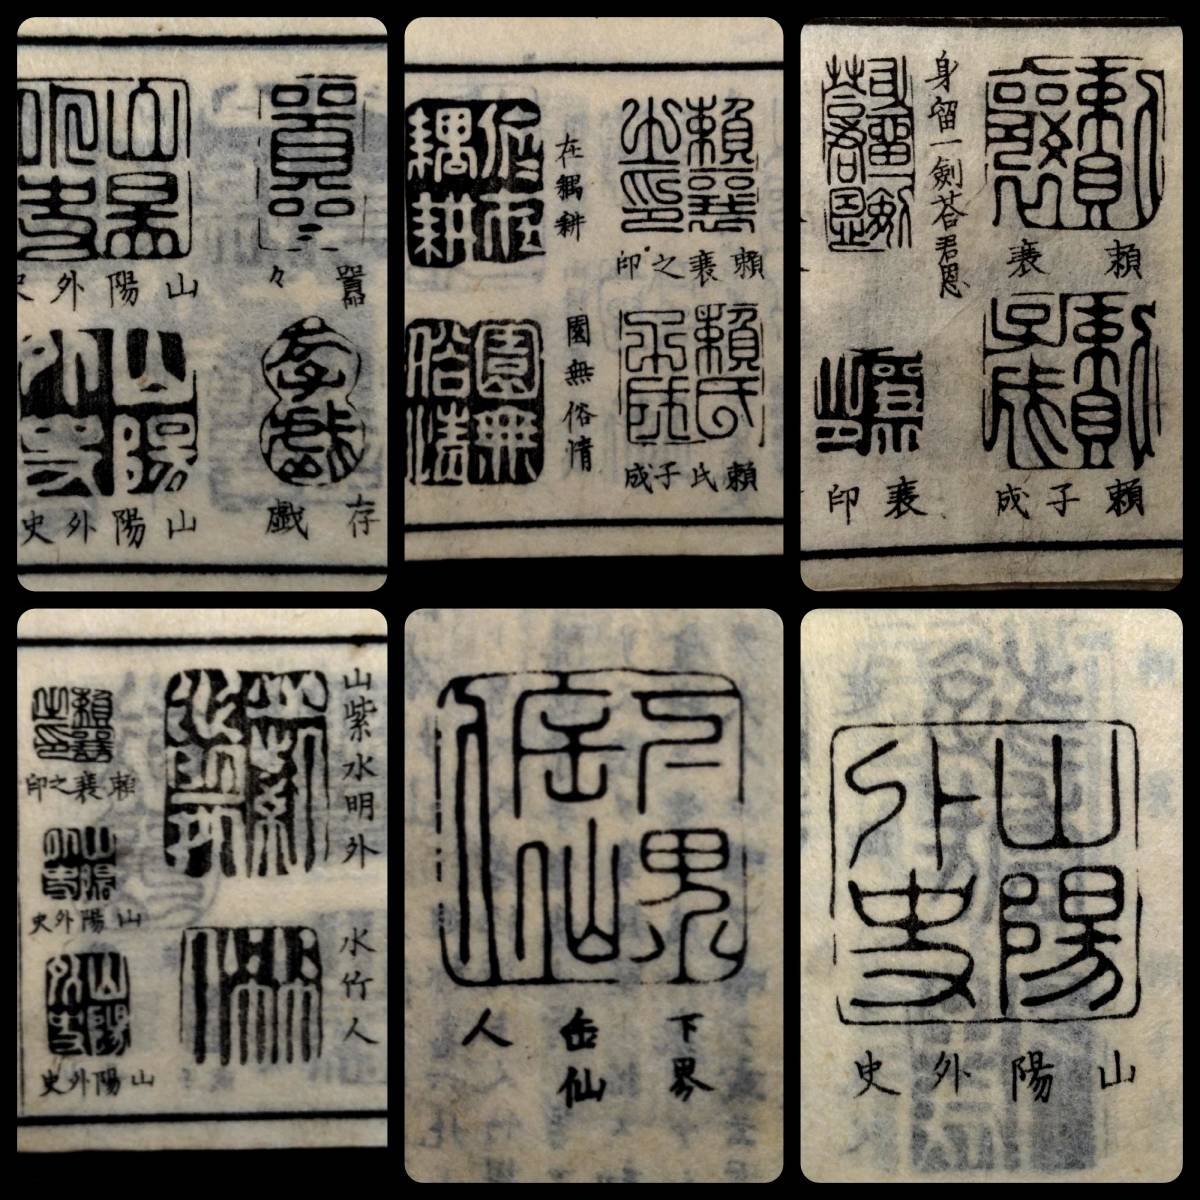 囂々
山陽外史
存戯
山陽外史
頼襄之印
在耦耕
頼氏子成
園無俗情
頼襄
身留一剣荅君恩
頼子成
襄印
山紫水明外
水竹人
頼襄之印
山陽外史
山陽外史
下界
缶仙
人
山陽外史